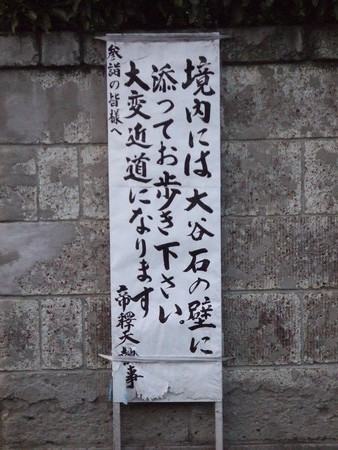 境内には大谷石の壁に
添ってお歩き下さい。
大変近道になります
参詣の皆様へ
帝釋天 事